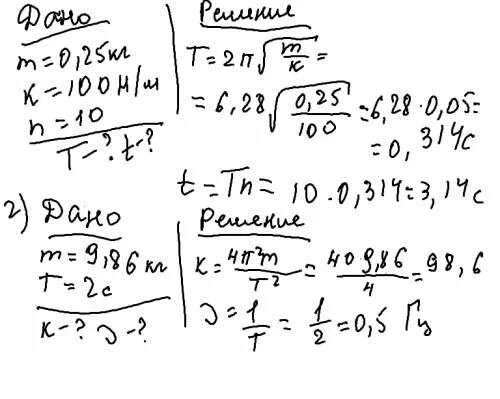 Дано
m=0,25кг
к=100Н/м
n=10
T-? t-?
Решение
T=2π√m/к=
=6,28√0,25/100=6,28·0,05=
=0,314с
t=Tn= 10·0,314=3,14с
2) Дано
m=9,86кг
T=2с
к-? ν-?
Решение
к=4π²m/T²=409,86/4=98,6
ν=1/T=1/2=0,5 Гц